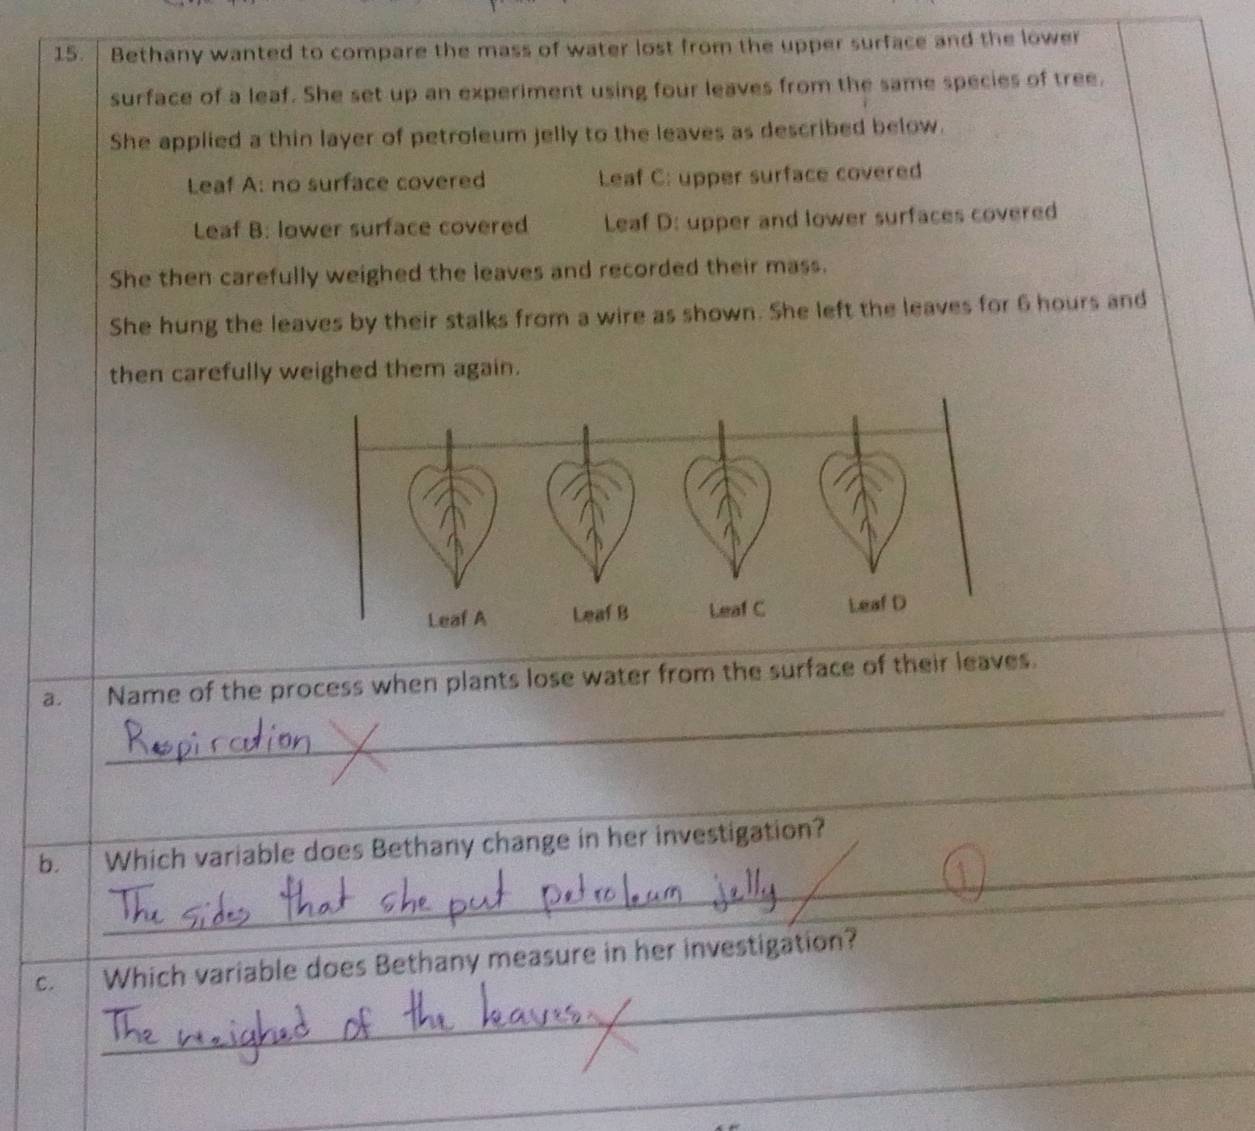 15. Bethany wanted to compare the mass of water lost from the upper surface and the lower
surface of a leaf. She set up an experiment using four leaves from the same species of tree.
She applied a thin layer of petroleum jelly to the leaves as described below.
Leaf A: no surface covered Leaf C: upper surface covered
Leaf B: lower surface covered Leaf D: upper and lower surfaces covered
She then carefully weighed the leaves and recorded their mass.
She hung the leaves by their stalks from a wire as shown. She left the leaves for 6 hours and
then carefully weighed them again.
Leaf A Leaf B Leaf C Leaf D
a. Name of the process when plants lose water from the surface of their leaves.
Respiration
b. Which variable does Bethany change in her investigation?
The sides that she put petroleum jelly
1
c. Which variable does Bethany measure in her investigation?
The weighed of the leaves.